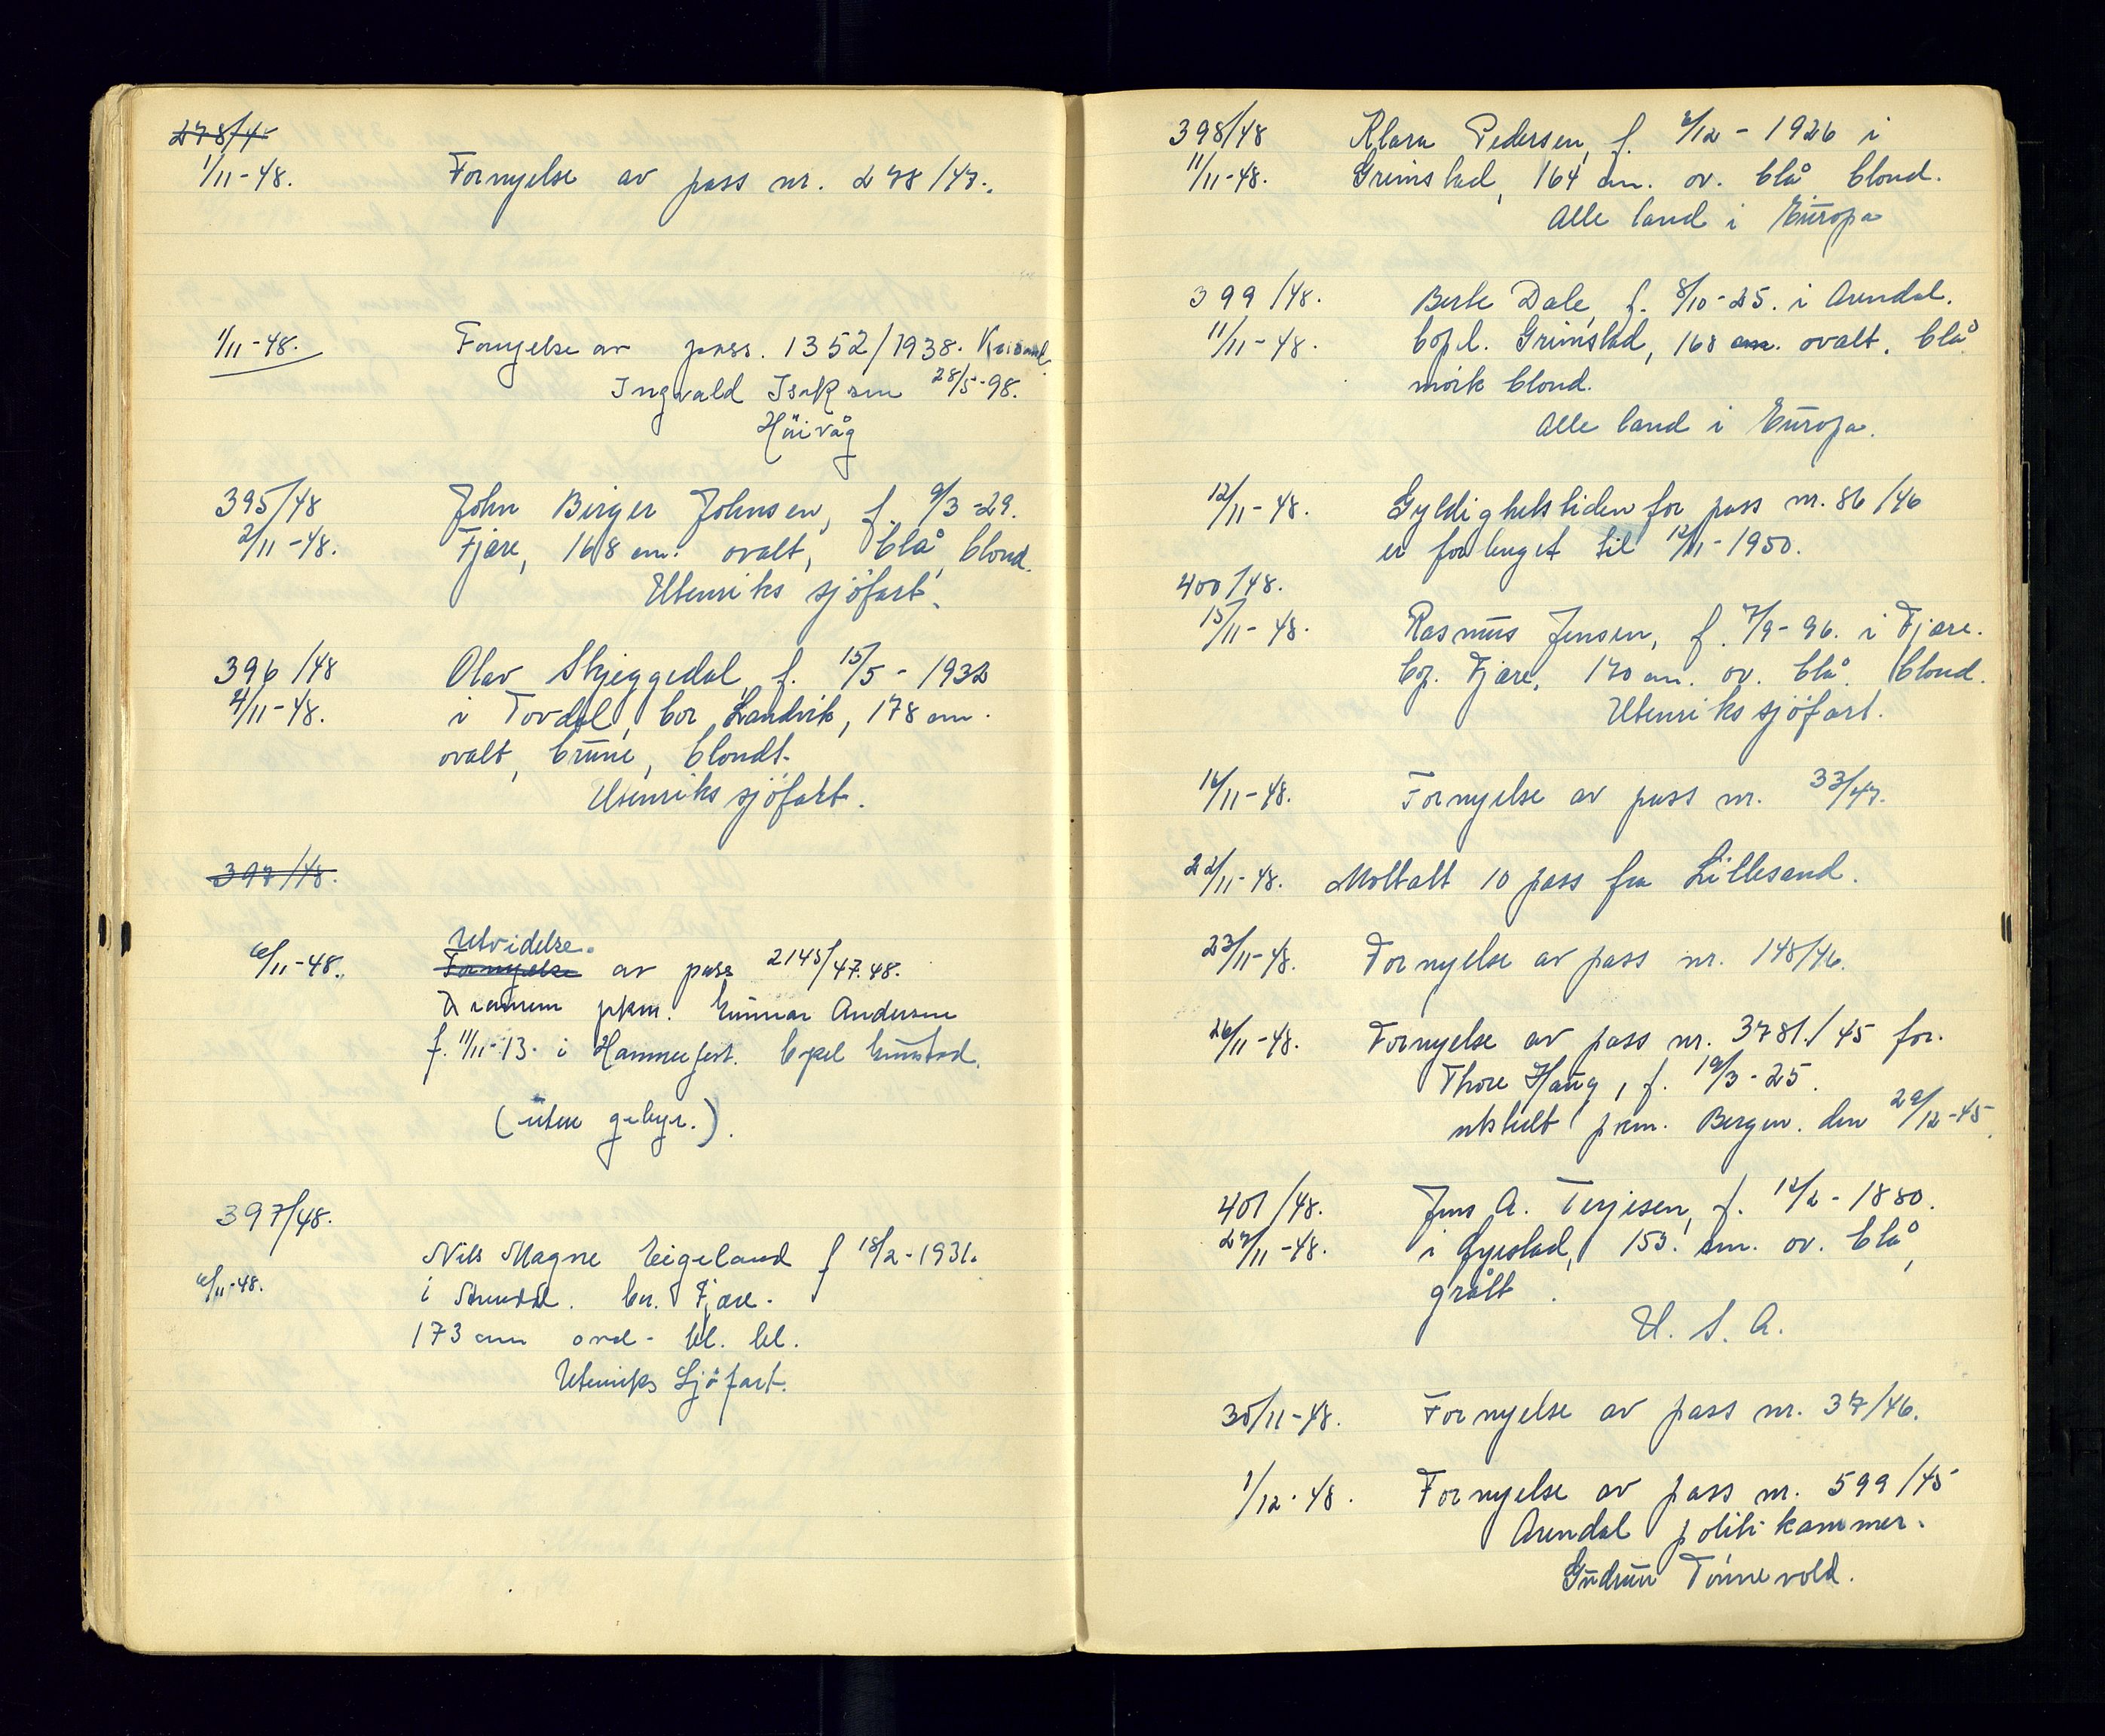 278/4
1/11-48. Fornyelse av pass nr. 278/47.
1/11-48. Fornyelse av pass. 1352/1938. Krisand
Ingvald Isaksen 28/5-98.
Höivåg
395/48 John Birger Johnsen, f. 9/3-29.
2/11-48. Fjære, 168 cm. ovalt, blå, blond.
Utenriks sjöfart.
396/48 Olav Skjeggedal, f. 15/5-1932
4/11-48. i Tovdal, bor Landvik, 178 cm.
ovalt, brune, blondt.
Utenriks sjöfart.
397/48.
6/11-48. Utvidelse.
Fornyelse av pass 2145/47.48.
Drammen pkm. Gunnar Andersen
f. 11/11-13. i Hammerfest. bopel Grimstad.
(uten gebyr.).
397/48.
6/11-48. Nils Magne Eigeland f 18/2-1931.
i Arendal. bor. Fjære.
173 cm oval- bl. bl.
Utenriks Sjöfart.
398/48 Klara Pedersen, f. 2/12-1926 i
11/11-48. Grimstad, 164 cm. ov. blå blond.
Alle land i Europa
399/48. Berte Dale, f. 8/10-25. i Arendal.
11/11-48. bopl. Grimstad, 168 cm. ovalt. blå
mörk blond.
Alle land i Europa.
12/11-48. Gyldighetstiden for pass nr. 86/46
er forlenget til 12/11-1950.
400/48.
15/11-48. Rasmus Jensen, f. 7/9-96. i Fjære.
bop. Fjære, 170 cm. ov. blå. blond.
Utenriks sjöfart.
16/11-48. Fornyelse av pass nr. 33/47.
22/11-48. Mottatt 10 pass fra Lillesand.
23/11-48. Fornyelse av pass nr. 148/46.
26/11-48. Fornyelse av pass nr. 3781./45 for.
Thore Haug, f. 19/3-25.
utstedt pkm. Bergen. den 29/12-45.
401/48. Jens A. Terjesen, f. 12/2-1880.
27/11-48. i Gjerstad, 153. cm. ov. blå,
grått.
U. S. A.
30/11-48. Fornyelse av pass nr. 37/46.
1/12-48. Fornyelse av pass nr. 599/45
Arendal politikammer.
Gudrun Tönnevold.